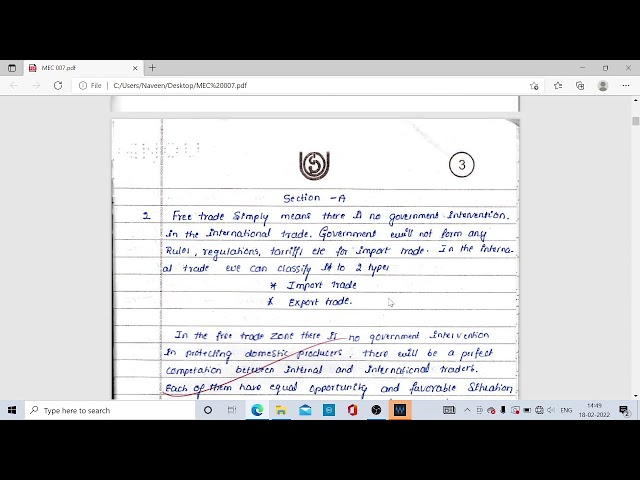 MEC 007.pdf
File | C:/Users/Naveen/Desktop/MEC%20007.pdf
3
Section - A
2 Free trade Simply means there is no government intervention.
in the international trade. Government will not form any
Rules, regulations, tarriffs etc for import trade. In the interna-
al trade we can classify it to 2 types
* Import trade
* Export trade.
In the free trade zone there is no government intervention
in protecting domestic producers, there will be a perfect
competation between internal and international traders.
Each of them have equal opportunity and favorable Situation
Type here to search
ENG
14:49
18-02-2022